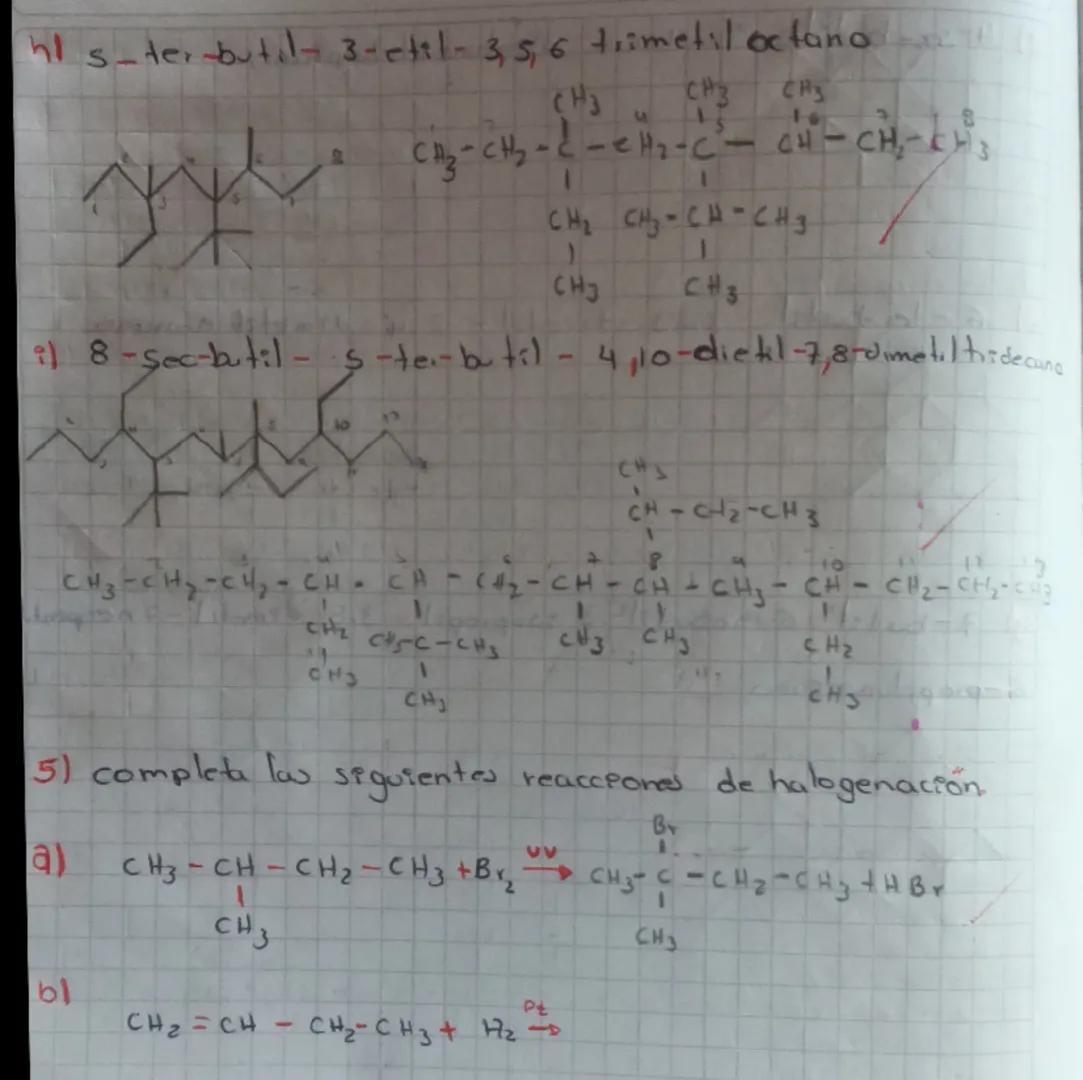 h) 5-ter-butil-3-etil-3,5,6 trimetil octano
CH3 CH3 CH3
CH3-CH2-C-CH2-C-CH-CH2-CH3
CH2 CH3-CH-CH3
CH3 CH3
i) 8-sec-butil-5-ter-butil-4,10-dietil-7,8-dimetiltridecano
CH3
CH-CH2-CH3
CH3-CH2-CH2-CH-CH-CH2-CH-CH-CH3-CH-CH2-CH2-CH3
CH2 CH3-C-CH3 CH3 CH3 CH2
CH3 CH3 CH3
5) completa las siguientes reacciones de halogenación
Br
a) CH3-CH-CH2-CH3+Br2 UV→ CH3-C-CH2-CH3+HBr
CH3 CH3
b)
CH2=CH-CH2-CH3+H2 Pt→